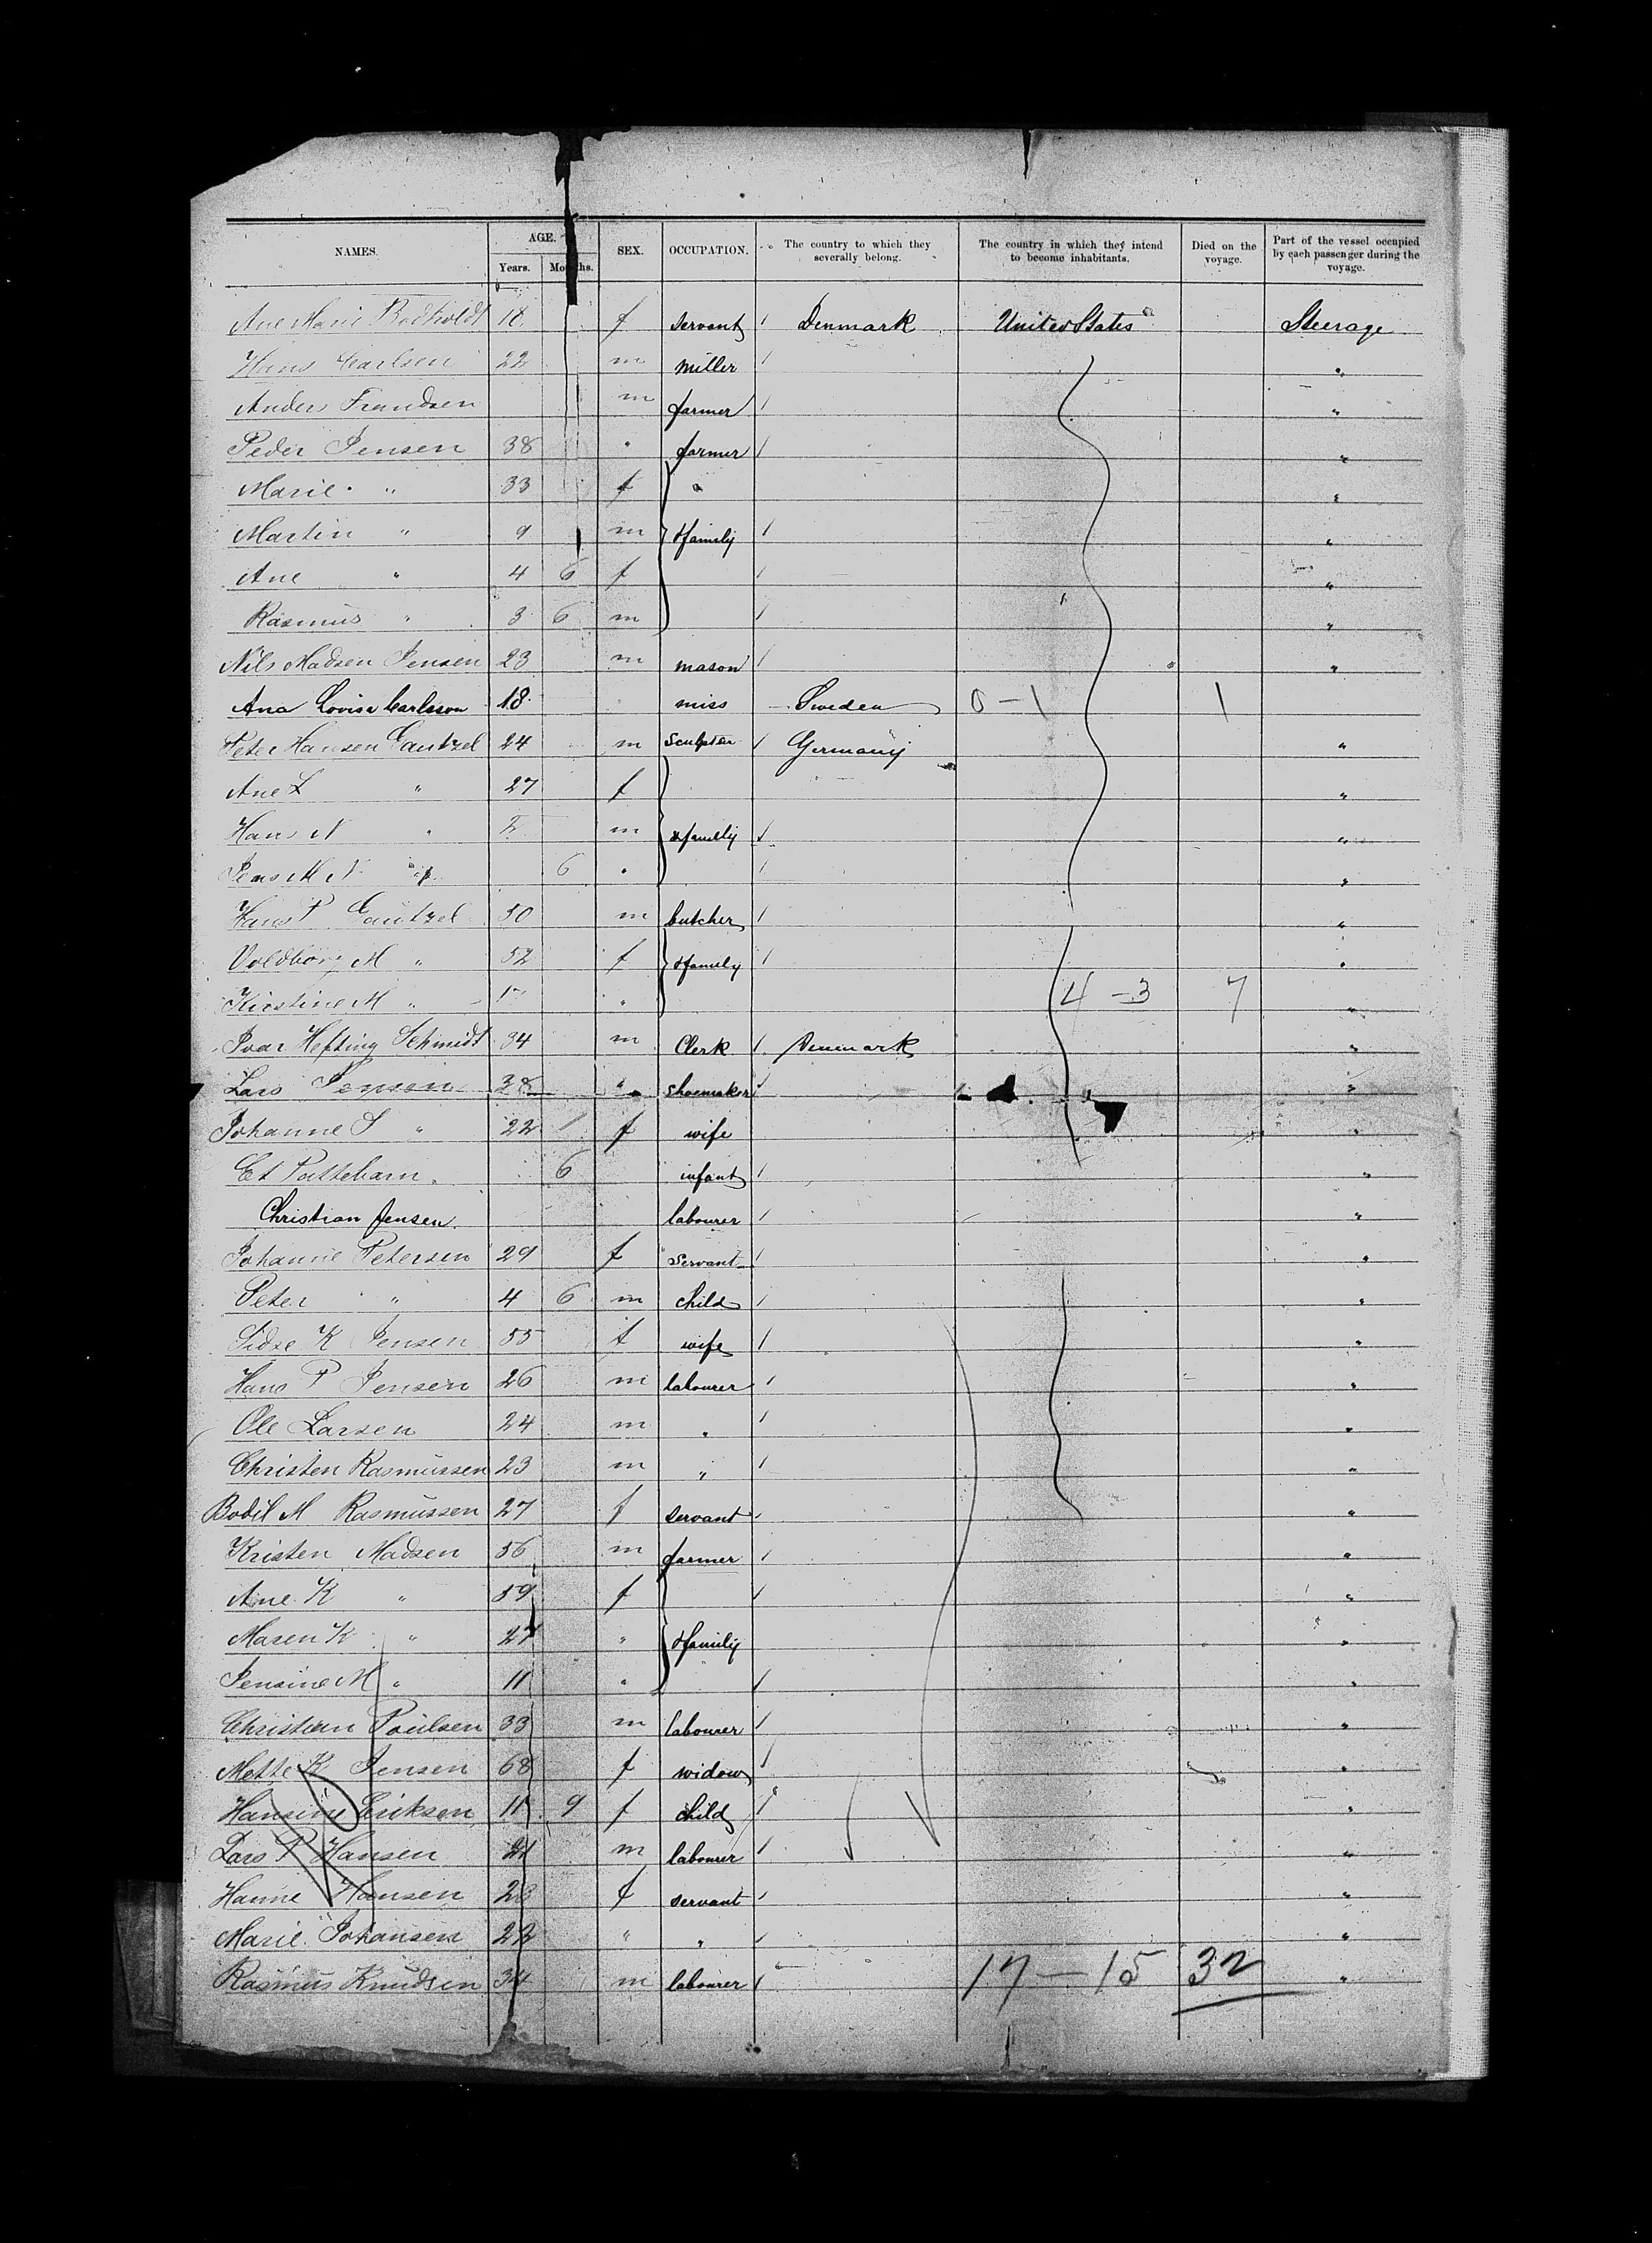 NAMES. AGE. SEX. OCCUPATION. The country to which they severally belong. The country in which they intend to become inhabitants. Died on the voyage. Part of the vessel occupied by each passenger during the voyage.
Years. Months.
Ane Marie Bodholdt 18 f servant Denmark United States Steerage
Hans Carlsen 22 m miller "
Anders Frandsen m farmer "
Peder Jensen 38 " farmer "
Marie " 33 f " "
Martin " 9 m & family "
Ane " 4 6 f "
Rasmus " 3 6 m "
Nils Madsen Jensen 23 m mason "
Ana Lovisa Carlsson 18 miss Sweden 0 - 1 1
Peter Hansen Gantzel 24 m Sculptor Germany "
Ane L " 27 f "
Hans N " m & family "
Jens M N " 6 " "
Hans P Gantzel 50 m butcher "
Voldborg M " 52 f & family "
Kirstine M " " 4 - 3 7 "
Ivar Hefting Schmidt 34 m Clerk Denmark "
Lars Jensen 38 " shoemaker "
Johanne S " 22 f wife "
Et Pattebarn 6 infant "
Christian Jensen labourer "
Johanne Petersen 29 f servant "
Peter " 4 6 m child "
Sidse K Jensen 55 f wife "
Hans P Jensen 26 m labourer "
Ole Larsen 24 m " "
Christen Rasmussen 23 m " "
Bodil M Rasmussen 27 f servant "
Kristen Madsen 56 m farmer "
Ane K " 59 f "
Maren K " 27 " & family "
Jensine M " 11 " "
Christian Poulsen 33 m labourer "
Mette K Jensen 68 f widow "
Hansine Eriksen 11 9 f child "
Lars P Hansen m labourer "
Hanne Hansen f servant "
Marie Johansen 22 " " "
Rasmus Knudsen 34 m labourer 17 - 15 32 "